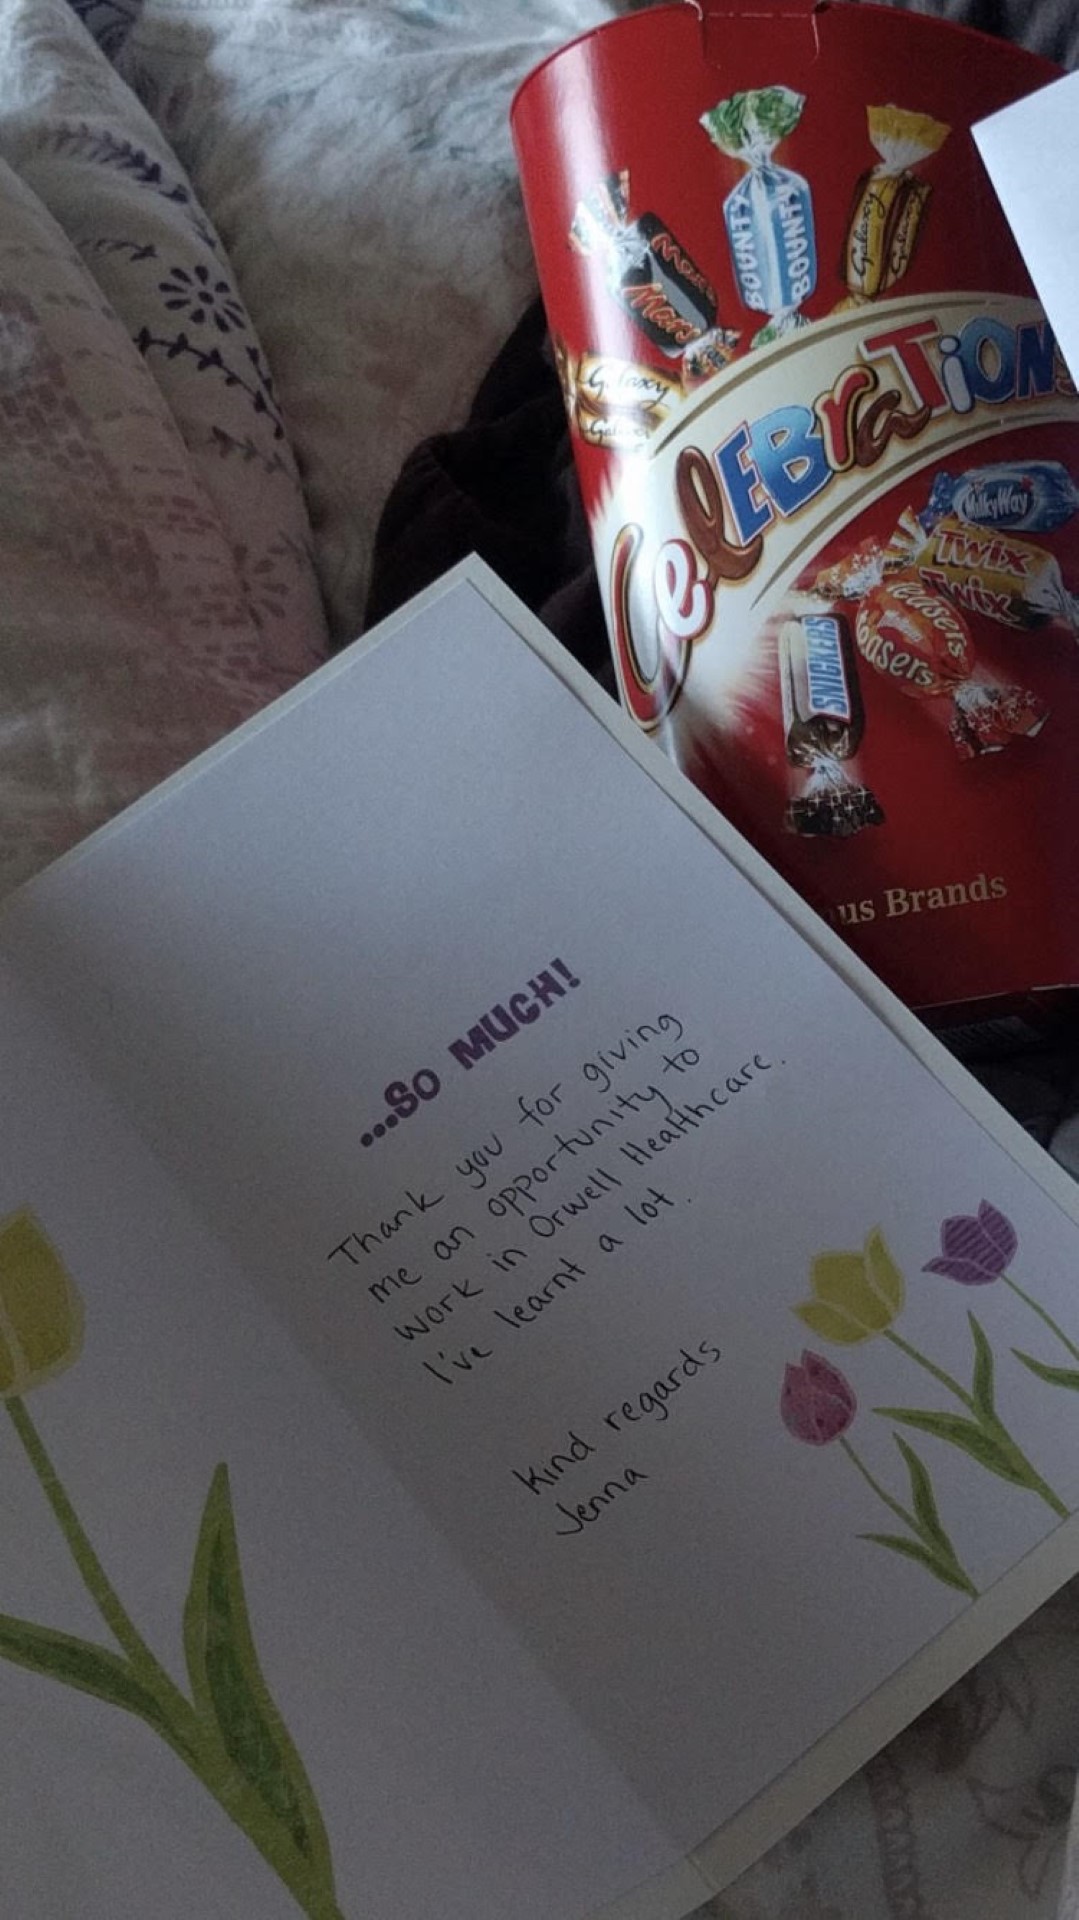 BOUNTY
BOUNTY
Galaxy
Galaxy
Mars
Mars
Galaxy
Galaxy
CELEBRATIONS
MilkyWay
Twix
Twix
teasers
teasers
SNICKERS
us Brands
...SO MUCH!
Thank you for giving
me an opportunity to
work in Orwell Healthcare.
I've learnt a lot.
Kind regards
Jenna